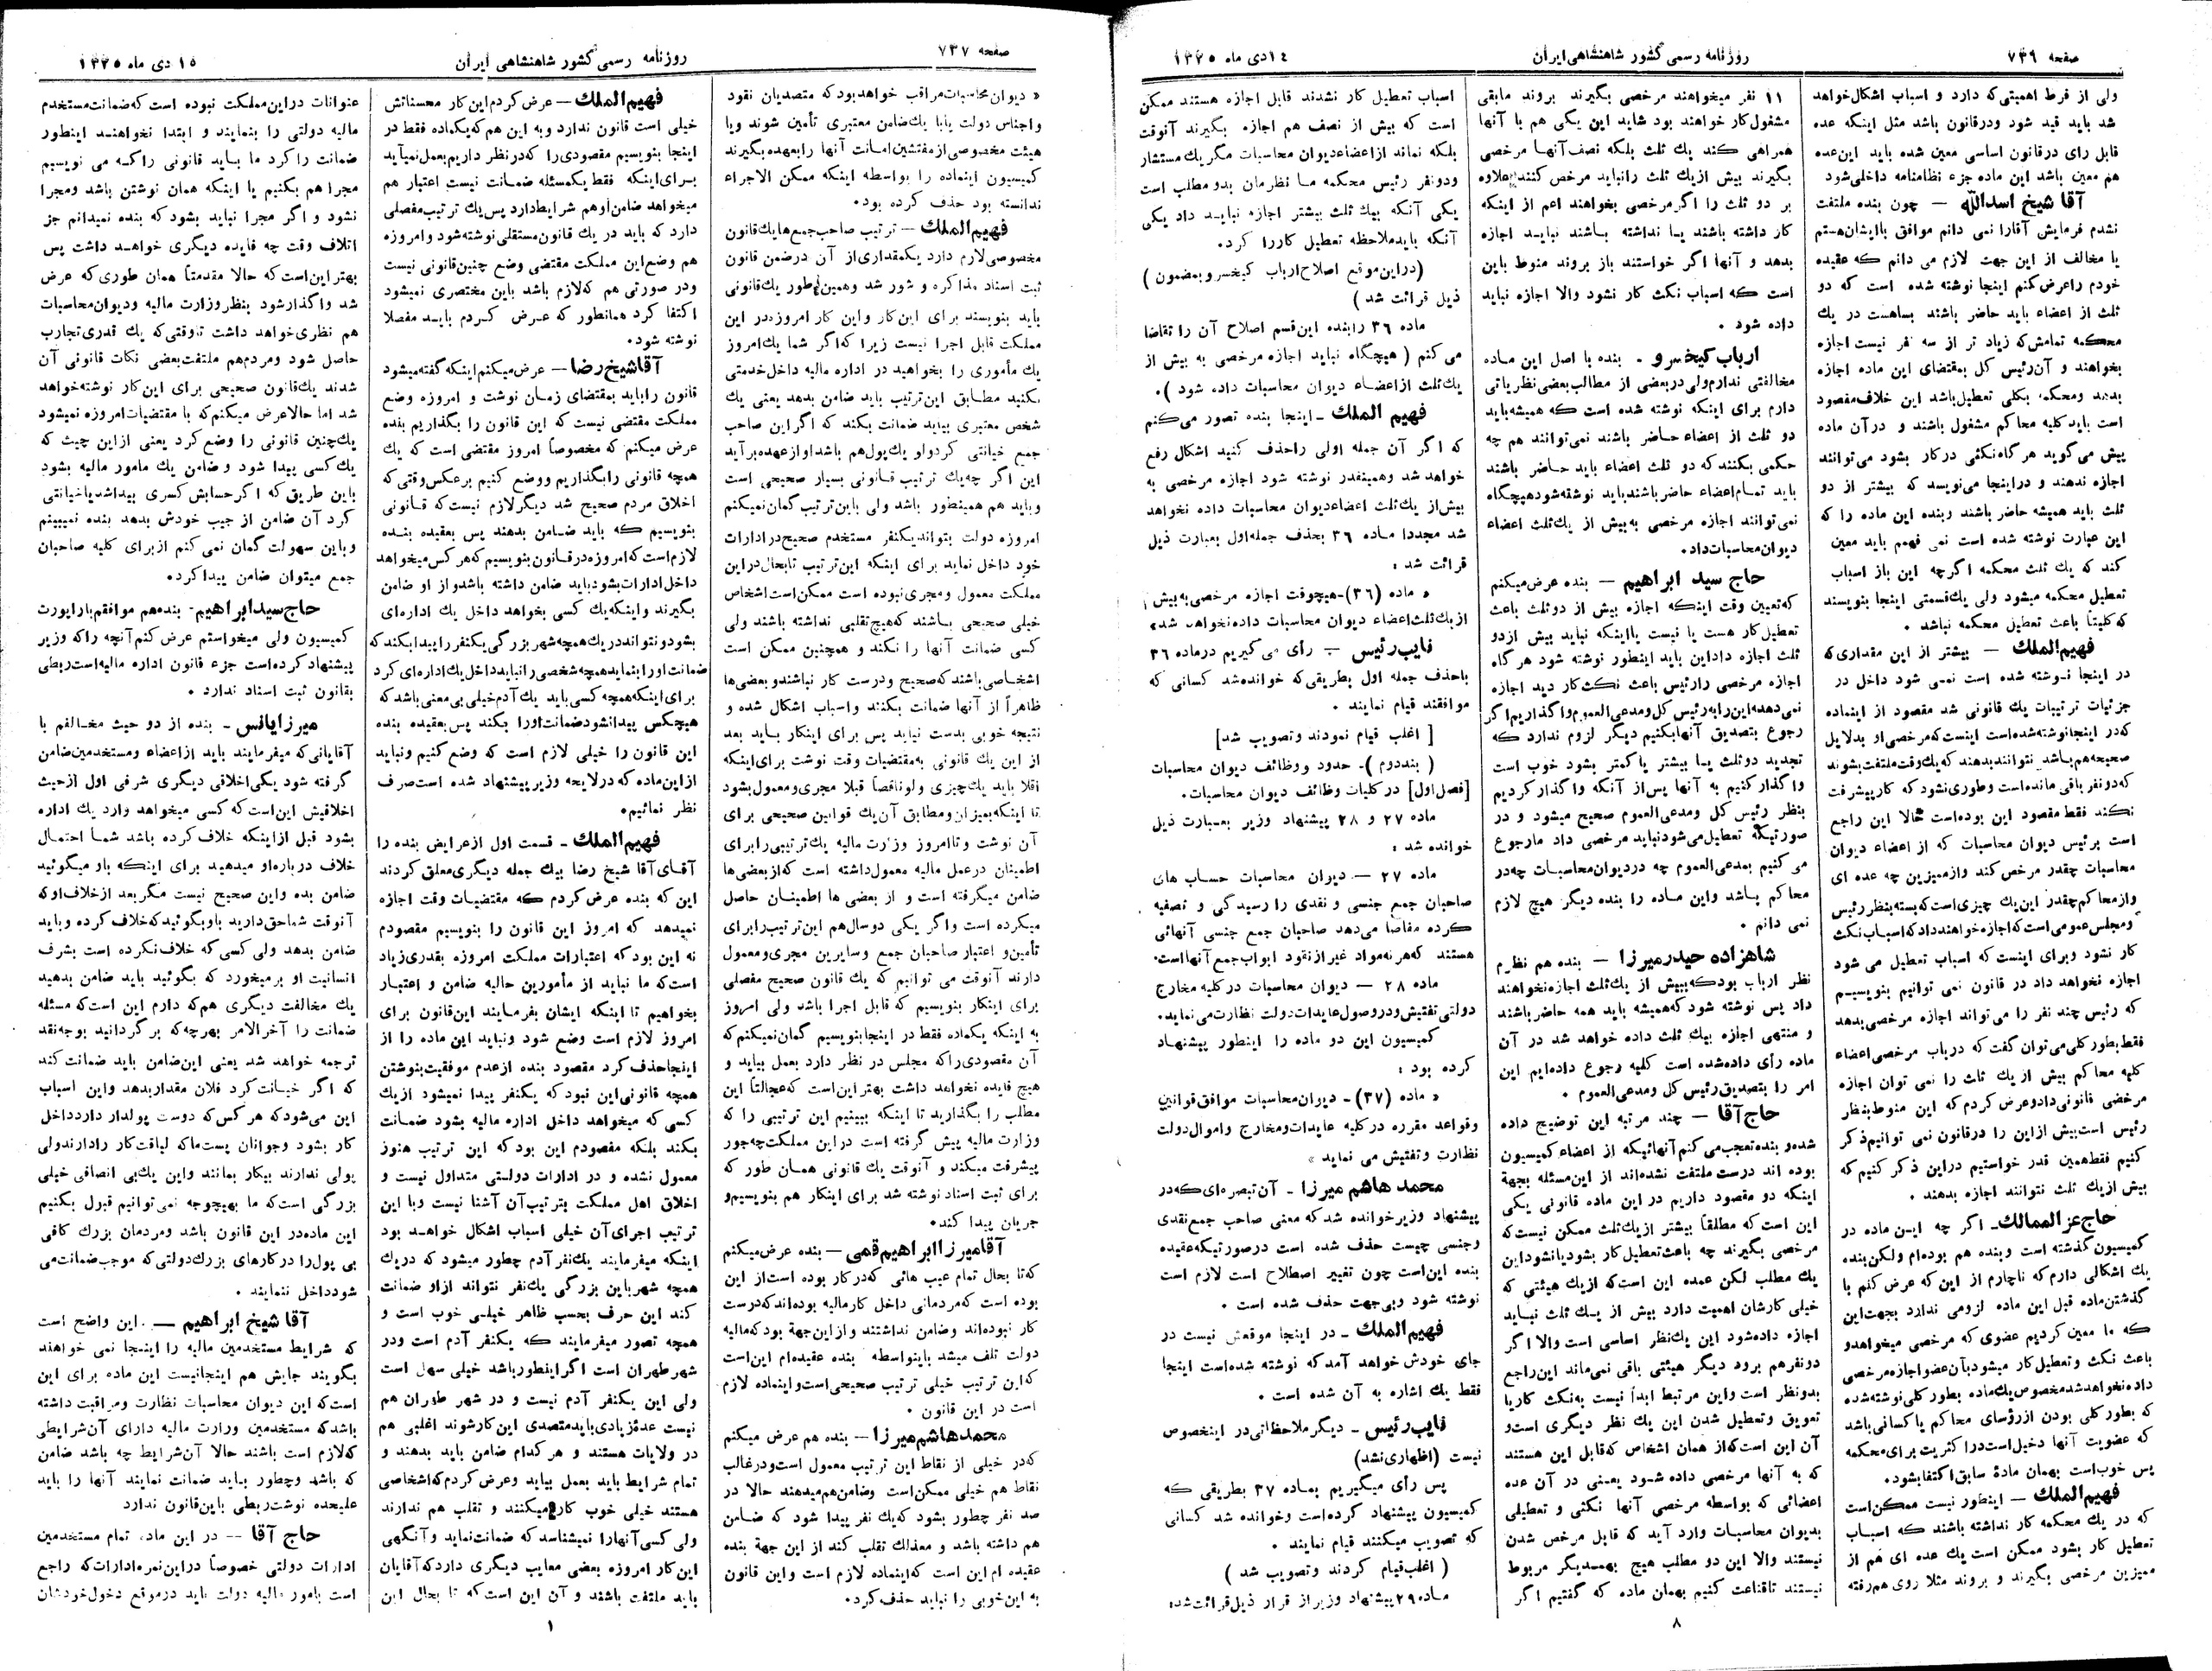 صفحه ۷۳۶
روزنامه رسمی کشور شاهنشاهی ایران
۱٤ دی ماه ۱۳۲۵
ولی از فرط اهمیتی‌که دارد و اسباب اشکال‌خواهد
شد باید قید شود ودرقانون باشد مثل اینکه عده
قابل رای درقانون اساسی معین شده باید این‌عده
هم معین باشد این ماده جزء نظامنامه داخلی‌شود
آقا شیخ اسدالله — چون بنده ملتفت
نشدم فرمایش آقارا نمی دانم موافق باایشان‌هستم
یا مخالف از این جهت لازم می دانم که عقیده
خودم راعرض‌کنم اینجا نوشته شده است که دو
ثلث از اعضاء باید حاضر باشند بساهست در یك
محکمه تمامش‌که زیاد تر از سه نفر نیست اجازه
بخواهند و آن‌رئیس کل بمقتضای این ماده اجازه
بدهد ومحکمه بکلی تعطیل‌باشد این خلاف‌مقصود
است باید کلیه محاکم مشغول باشند و درآن ماده
پیش می‌گوید هر گاه نکثی درکار بشود می‌توانند
اجازه ندهند و دراینجا می‌نویسد که بیشتر از دو
ثلث باید همیشه حاضر باشند وبنده این ماده را که
این عبارت نوشته شده است نمی فهمم باید معین
کند که یك ثلث محکمه اگرچه این باز اسباب
تعطیل محکمه میشود ولی یك‌قسمتی اینجا بنویسند
که‌کلیتاً باعث تعطیل محکمه نباشد .
فهیم‌الملك — بیشتر از این مقداری‌که
در اینجا نوشته شده است نمی شود داخل در
جزئیات ترتیبات یك قانونی شد مقصود از اینماده
که‌در اینجانوشته‌شده‌است اینست‌که‌مرخصی‌او بدلایل
صحیحه هم‌باشد نتوانندبدهند که‌یك‌وقت‌ملتفت‌بشوند
که‌دونفر باقی مانده‌است وطوری‌نشود که کارپیشرفت
نکند فقط مقصود این بوده‌است حالا این راجع
است برئیس دیوان محاسبات که از اعضاء دیوان
محاسبات چقدر مرخص کند وازممیزین چه عده ای
وازمحاکم چقدر این‌یك چیزی‌است‌که‌بسته بنظر رئیس
ومجلس‌عمومی‌است‌که اجازه‌خواهندداد که‌اسباب نکث
کار نشود وبرای اینست که اسباب تعطیل می شود
اجازه نخواهد داد در قانون نمی توانیم بنویسیم
که رئیس چند نفر را می‌تواند اجازه مرخصی‌بدهد
فقط‌بطور کلی‌می‌توان گفت‌که درباب مرخصی‌اعضاء
کلیه محاکم بیش ازیك ثلث را نمی توان اجازه
مرخصی قانونی‌دادوعرض کردم‌که این منوط‌بنظر
رئیس است‌بیش ازاین را درقانون نمی توانیم‌ذکر
کنیم فقط‌همین قدر خواستیم دراین ذکر کنیم که
بیش ازیك ثلث نتوانند اجازه بدهند .
حاج‌عزالممالك– اگر چه این ماده در
کمیسیون گذشته است وبنده هم بوده‌ام ولکن‌بنده
یك اشکالی دارم‌که ناچارم از این‌که عرض‌کنم با
گذشتن‌ماده قبل این ماده لزومی ندارد بجهت‌این
که ما معین کردیم عضوی که مرخصی میخواهدو
باعث نکث وتعطیل‌کار میشودبآن‌عضواجازه‌مرخصی
داده‌نخواهدشدمخصوص‌یك‌ماده بطورکلی‌نوشته‌شده
که بطورکلی بودن ازرؤسای محاکم یاکسانی‌باشد
که عضویت آنها دخیل‌است‌دراکثریت برای‌محکمه
پس خوب‌است بهمان مادهٔ سابق‌اکتفابشود.
فهیم‌الملك — اینطور نیست ممکن‌است
که در یك محکمه کار نداشته باشند که اسباب
تعطیل کار بشود ممکن است یك عده ای هم از
ممیزین مرخصی بگیرند و بروند مثلا روی هم‌رفته
۱۱ نفر میخواهند مرخصی بگیرند بروند مابقی
مشغول‌کار خواهند بود شاید این یکی هم با آنها
همراهی کند یك ثلث بلکه نصف‌آنها مرخصی
بگیرند بیش ازیك ثلث رانباید مرخص کنند بعلاوه
بر دو ثلث را اگرمرخصی بخواهند اعم از اینکه
کار داشته باشند یا نداشته باشند نباید اجازه
بدهد و آنها اگر خواستند باز بروند منوط باین
است که اسباب نکث کار نشود والا اجازه نباید
داده شود .
ارباب‌کیخسرو - بنده با اصل این ماده
مخالفتی ندارم‌ولی‌دربعضی از مطالب‌بعضی‌نظریاتی
دارم برای اینکه نوشته شده است که همیشه‌باید
دو ثلث از اعضاء حاضر باشند نمی‌توانند هم چه
حکمی بکنندکه دو ثلث اعضاء باید حاضر باشند
باید تمام‌اعضاء حاضرباشندباید نوشته‌شودهیچگاه
نمی‌توانند اجازه مرخصی به‌بیش از یك‌ثلث اعضاء
دیوان‌محاسبات‌داد.
حاج سید ابراهیم — بنده عرض‌میکنم
که‌تعیین وقت اینکه اجازه بیش از دوثلث باعث
تعطیل‌کار هست یا نیست یااینکه نباید بیش ازدو
ثلث اجازه داداین باید اینطور نوشته شود هرگاه
اجازه مرخصی رارئیس باعث نکث‌کار دید اجازه
نمی‌دهداین‌رابه‌رئیس‌کل‌ومدعی‌العموم‌واگذاریم‌اگر
رجوع بتصدیق آنهابکنیم دیگر لزوم ندارد که
تجدید دوثلث یا بیشتر یاکمتر بشود خوب است
واگذارکنیم به آنها پس‌از آنکه واگذارکردیم
بنظر رئیس کل ومدعی‌العموم صحیح میشود و در
صورتیکه تعطیل‌می‌شودنباید مرخصی داد مارجوع
می کنیم بمدعی‌العموم چه دردیوان‌محاسبات چه‌در
محاکم باشد واین ماده را بنده دیگر هیچ لازم
نمی دانم .
شاهزاده حیدرمیرزا — بنده هم نظرم
نظر ارباب بودکه‌بیش از یك‌ثلث اجازه‌نخواهند
داد پس نوشته شودکه‌همیشه باید همه حاضرباشند
و منتهی اجازه بیك ثلث داده خواهد شد در آن
ماده رأی داده‌شده است کلیه رجوع داده‌ایم این
امر را بتصدیق‌رئیس‌کل ومدعی‌العموم .
حاج‌آقا — چند مرتبه این توضیح داده
شدوبنده‌تعجب‌می‌کنم‌آنهائیکه از اعضاءکمیسیون
بوده اند درست ملتفت نشده‌اند از این‌مسئله بجهة
اینکه دو مقصود داریم در این ماده قانونی یکی
این است‌که مطلقاً بیشتر ازیك‌ثلث ممکن نیست‌که
مرخصی بگیرند چه باعث‌تعطیل‌کار بشودیانشوداین
یك مطلب لکن عمده این است‌که ازیك هیئتی که
خیلی کارشان اهمیت دارد بیش از یك ثلث نباید
اجازه داده‌شود این یك‌نظر اساسی است والا اگر
دونفرهم برود دیگر هیئتی باقی نمی‌ماند این‌راجع
بدونظر است واین مرتبط ابداً نیست به‌نکث کاریا
تعویق وتعطیل شدن این یك نظر دیگری است‌و
آن این است‌که‌از همان اشخاص که‌قابل این هستند
که به آنها مرخصی داده شود یعنی در آن عده
اعضائی که بواسطه مرخصی آنها نکثی و تعطیلی
بدیوان محاسبات وارد آید که قابل مرخص شدن
نیستند والا این دو مطلب هیچ بهمدیگر مربوط
نیستند تاقناعت کنیم بهمان ماده که گفتیم اگر
اسباب تعطیل کار نشدند قابل اجازه هستند ممکن
است که بیش از نصف هم اجازه بگیرند آنوقت
بلکه نماند ازاعضاءدیوان محاسبات مگریك‌مستشار
ودونفر رئیس محکمه ما نظرمان بدو مطلب است
یکی آنکه بیك ثلث بیشتر اجازه نباید داد یکی
آنکه باید‌ملاحظه تعطیل کاررا کرد.
(دراین‌موقع اصلاح‌ارباب کیخسرو بمضمون )
ذیل قرائت شد )
ماده ۳۶ رابنده این‌قسم اصلاح آن را تقاضا
می کنم ( هیچگاه نباید اجازه مرخصی به بیش از
یك‌ثلث ازاعضاء دیوان محاسبات داده شود ).
فهیم الملك – اینجا بنده تصور می‌کنم
که اگر آن جمله اولی راحذف کنید اشکال رفع
خواهد شد وهمینقدر نوشته شود اجازه مرخصی به
بیش‌از یك‌ثلث اعضاءدیوان محاسبات داده نخواهد
شد مجددا ماده ۳۶ بحذف جمله‌اول بعبارت ذیل
قرائت شد :
« ماده (۳۶)-هیچوقت اجازه مرخصی‌به‌بیش
ازیك‌ثلث‌اعضاء دیوان محاسبات داده‌نخواهد شد»
نایب‌رئیس — رأی می گیریم درماده ۳۶
باحذف جمله اول بطریقی‌که خوانده‌شد کسانی که
موافقند قیام نمایند .
[ اغلب قیام نمودند وتصویب شد]
( بنددوم )- حدود ووظائف دیوان محاسبات
[فصل‌اول] در کلیات وظائف دیوان محاسبات.
ماده ۲۷ و ۲۸ پیشنهاد وزیر بعبارت ذیل
خوانده شد :
ماده ۲۷ — دیوان محاسبات حساب های
صاحبان جمع جنسی و نقدی را رسیدگی و تصفیه
کرده مفاصا می‌دهد صاحبان جمع جنسی آنهائی
هستند که‌هرنه‌مواد غیرازنقود ابواب‌جمع آنهااست.
ماده ۲۸ — دیوان محاسبات درکلیه مخارج
دولتی‌تفتیش‌ودروصول‌عایدات‌دولت نظارت‌می‌نماید.
کمیسیون این دو ماده را اینطور پیشنهاد
کرده بود :
« ماده (۳۷)- دیوان‌محاسبات موافق‌قوانین
وقواعد مقرره درکلیه عایدات‌ومخارج واموال‌دولت
نظارت وتفتیش می نماید »
محمد هاشم میرزا - آن تبصره‌ای‌که‌در
پیشنهاد وزیرخوانده شدکه معنی صاحب جمع‌نقدی
وجنسی چیست حذف شده است درصورتیکه‌عقیده
بنده این‌است چون تغییر اصطلاح است لازم است
نوشته شود وبی‌جهت حذف شده است .
فهیم‌الملك – در اینجا موقعش نیست در
جای خودش خواهد آمدکه نوشته شده‌است اینجا
فقط یك اشاره به آن شده است .
نایب‌رئیس – دیگر ملاحظاتی‌در اینخصوص
نیست (اظهاری‌نشد)
پس رأی میگیریم بماده ۳۷ بطریقی که
کمیسیون پیشنهاد کرده‌است وخوانده شد کسانی
که تصویب میکنند قیام نمایند .
( اغلب‌قیام کردند وتصویب شد )
ماده۲۹پیشنهاد وزیراز قرار ذیل‌قرائت‌شد:
۸
صفحه ۷۳۷
روزنامه رسمی کشور شاهنشاهی ایران
۱٥ دی ماه ۱۳۲٥
« دیوان‌محاسبات‌مراقب خواهدبودکه متصدیان نقود
واجناس دولت یابا یك‌ضامن معتبری تأمین شوند ویا
هیئت مخصوصی‌ازمفتشین‌امانت آنها رابعهده بگیرند
کمیسیون اینماده را بواسطه اینکه ممکن الاجراء
ندانسته بود حذف کرده بود.
فهیم‌الملك — ترتیب صاحب‌جمع‌هایك‌قانون
مخصوصی‌لازم دارد یکمقداری‌از آن درضمن قانون
ثبت اسناد مذاکره و شور شد وهمین‌طور یك‌قانونی
باید بنویسند برای این‌کار واین کار امروزه‌در این
مملکت قابل اجرا نیست زیرا که‌اگر شما یك‌امروز
یك مأموری را بخواهید در اداره مالیه داخل‌خدمتی
بکنید مطابق این‌ترتیب باید ضامن بدهد یعنی یك
شخص معتبری بیاید ضمانت بکند که اگراین صاحب
جمع خیانتی کرداو یك‌پول‌هم باشداوازعهده‌برآید
این اگر چه‌یك ترتیب قانونی بسیار صحیحی است
وباید هم همینطور باشد ولی باین‌ترتیب گمان‌نمیکنم
امروزه دولت بتواندیکنفر مستخدم صحیح‌درادارات
خود داخل نماید برای اینکه این‌ترتیب تابحال‌دراین
مملکت معمول ومجری‌نبوده است ممکن‌است‌اشخاص
خیلی صحیحی باشند که‌هیچ‌تقلبی نداشته باشند ولی
کسی ضمانت آنها را نکند و همچنین ممکن است
اشخاصی‌باشندکه‌صحیح ودرست کار نباشندوبعضی‌ها
ظاهراً از آنها ضمانت بکنند واسباب اشکال شده و
نتیجه خوبی بدست نیاید پس برای اینکار باید بعد
از این یك قانونی به‌مقتضیات وقت نوشت برای‌اینکه
اقلا باید یك‌چیزی ولوناقصاً قبلا مجری‌ومعمول‌بشود
تا اینکه‌بمیزان‌ومطابق آن‌یك قوانین صحیحی برای
آن نوشت وتاامروز وزارت مالیه یك‌ترتیبی‌رابرای
اطمینان درعمل مالیه معمول‌داشته است که‌ازبعضی‌ها
ضامن میگرفته است و از بعضی ها اطمینان حاصل
میکرده است واگر یکی دوسال‌هم این‌ترتیب‌رابرای
تأمین‌و اعتبار صاحبان جمع وسایرین مجری‌ومعمول
دارند آنوقت می توانیم که یك قانون صحیح مفصلی
برای اینکار بنویسیم که قابل اجرا باشد ولی امروز
به اینکه یکماده فقط در اینجابنویسیم گمان‌نمیکنم‌که
آن مقصودی‌راکه مجلس در نظر دارد بعمل بیاید و
هیچ فایده نخواهد داشت بهتراین‌است که‌عجالتاً این
مطلب را بگذارید تا اینکه ببینیم این ترتیبی را که
وزارت مالیه پیش گرفته است دراین مملکت‌چه‌جور
پیشرفت میکند و آنوقت یك قانونی همان طور که
برای ثبت اسناد نوشته شد برای اینکار هم بنویسیم‌و
جریان پیدا کند.
آقامیرزاابراهیم‌قمی — بنده عرض‌میکنم
که‌تا بحال تمام عیب هائی که‌درکار بوده است‌از این
بوده است که‌مردمانی داخل کارمالیه بوده‌اندکه‌درست
کار نبوده‌اند وضامن نداشتند وازاین‌جهة بودکه‌مالیه
دولت تلف میشد باینواسطه بنده عقیده‌ام این‌است
که‌این ترتیب خیلی ترتیب صحیحی‌است‌واینماده لازم
است در این قانون .
محمدهاشم‌میرزا — بنده هم عرض میکنم
که‌در خیلی از نقاط این ترتیب معمول است‌ودرغالب
نقاط هم خیلی ممکن‌است وضامن‌هم‌میدهند حالا در
صد نفر چطور بشود که‌یك نفر پیدا شود که ضامن
هم داشته باشد و معذلك تقلب کند از این جهة بنده
عقیده ام‌این است که‌اینماده لازم است واین قانون
به این‌خوبی را نباید حذف‌کرد.
فهیم‌الملك — عرض کردم‌این‌کار محسناتش
خیلی است قانون ندارد وبه این هم که‌یکماده فقط در
اینجا بنویسیم مقصودی‌را که‌در نظر داریم‌بعمل‌نمیآید
برای‌اینکه فقط یکمسئله ضمانت نیست اعتبار هم
میخواهد ضامن‌اوهم شرایط‌دارد پس‌یك ترتیب‌مفصلی
دارد که باید در یك قانون‌مستقلی نوشته‌شود وامروزه
هم وضع‌این مملکت مقتضی وضع چنین‌قانونی نیست
ودر صورتی هم که‌لازم باشد باین مختصری نمیشود
اکتفا کرد همانطور که عرض کردم باید مفصلا
نوشته شود.
آقاشیخ‌رضا — عرض‌میکنم‌اینکه گفته‌میشود
قانون راباید بمقتضای زمان نوشت و امروزه وضع
مملکت مقتضی نیست که این قانون را بگذاریم بنده
عرض میکنم که مخصوصاً امروز مقتضی است که یك
همچه قانونی رابگذاریم ووضع کنیم برعکس‌وقتی‌که
اخلاق مردم صحیح شد دیگرلازم نیست‌که قانونی
بنویسیم که باید ضامن بدهند پس بعقیده بنده
لازم‌است که‌امروزه‌درقانون بنویسیم که‌هرکس‌میخواهد
داخل‌ادارات‌بشودباید ضامن داشته باشدواز او ضامن
بگیرند واینکه‌یك کسی بخواهد داخل یك اداره‌ای
بشودونتوانددریك همچه‌شهر بزرگی‌یکنفررا پیدابکندکه
ضمانت‌اورابنمایدهمچه‌شخصی‌رانبایدداخل‌یك‌اداره‌ای‌کرد
برای‌اینکه‌همچه‌کسی‌باید یك‌آدم‌خیلی‌بی‌معنی‌باشدکه
هیچکس پیدانشودضمانت‌اورا بکند پس‌بعقیده بنده
این قانون را خیلی لازم است که وضع کنیم ونباید
ازاین‌ماده که‌درلایحه وزیرپیشنهاد شده است‌صرف
نظر نمائیم.
فهیم‌الملك – قسمت اول ازعرایض بنده را
آقای‌آقا شیخ رضا بیك جمله دیگری‌معلق کردند
این که بنده عرض‌کردم که مقتضیات وقت اجازه
نمیدهد که امروز این قانون را بنویسیم مقصودم
نه این بود که اعتبارات مملکت امروزه بقدری‌زیاد
است‌که ما نباید از مأمورین مالیه ضامن و اعتبار
بخواهیم تا اینکه ایشان بفرمایند این‌قانون برای
امروز لازم است وضع شود ونباید این ماده را از
اینجاحذف‌کرد مقصود بنده ازعدم موفقیت‌بنوشتن
همچه قانونی‌این نبود که یکنفر پیدا نمیشود ازیك
کسی که میخواهد داخل اداره مالیه بشود ضمانت
بکند بلکه مقصودم این بود که این ترتیب هنوز
معمول نشده و در ادارات دولتی متداول نیست و
اخلاق اهل مملکت بترتیب‌آن آشنا نیست وبا این
ترتیب اجرای‌آن خیلی اسباب اشکال خواهد بود
اینکه میفرمایند یك‌نفرآدم چطور میشود که دریك
همچه شهرباین بزرگی یك‌نفر نتواند ازاو ضمانت
کند این حرف بحسب ظاهر خیلی خوب است و
همچه تصور میفرمایند که یکنفر آدم است ودر
شهرطهران است اگراینطورباشد خیلی سهل است
ولی این یکنفر آدم نیست و در شهر طهران هم
نیست عدهٔزیادی‌بایدمتصدی این‌کارشوند اغلبی هم
در ولایات هستند و هرکدام ضامن باید بدهند و
تمام شرایط باید بعمل بیاید وعرض کردم‌که‌اشخاصی
هستند خیلی خوب کار میکنند و تقلب هم ندارند
ولی کسی‌آنهارا نمیشناسد که ضمانت‌نماید وآنگهی
این‌کار امروزه بعضی معایب دیگری داردکه‌آقایان
باید ملتفت باشند و آن این است‌که تا بحال این
عنوانات دراین‌مملکت نبوده است‌که‌ضمانت‌مستخدم
مالیه دولتی را بنمایند و ابتدا نخواهند اینطور
ضمانت راکرد ما باید قانونی راکه می نویسیم
مجرا هم بکنیم یا اینکه همان نوشتن باشد ومجرا
نشود و اگر مجرا نباید بشود که بنده نمیدانم جز
اتلاف وقت چه فایده دیگری خواهد داشت پس
بهتر این‌است‌که حالا مقدمتاً همان طوری که عرض
شد واگذارشود بنظروزارت مالیه ودیوان‌محاسبات
هم نظری‌خواهد داشت تاوقتی‌که یك قدری‌تجارب
حاصل شود ومردم‌هم ملتفت‌بعضی نکات قانونی آن
شدند یك‌قانون صحیحی برای این‌کار نوشته‌خواهد
شد اما حالاعرض میکنم‌که با مقتضیات‌امروزه نمیشود
یك‌چنین قانونی را وضع‌کرد یعنی ازاین حیث که
یك‌کسی پیدا شود و ضامن یك مامور مالیه بشود
باین طریق‌که اگرحسابش‌کسری پیداشدیاخیانتی
کرد آن ضامن از جیب خودش بدهد بنده نمیبینم
وباین سهولت گمان نمی کنم ازبرای کلیه صاحبان
جمع میتوان ضامن پیدا کرد.
حاج‌سیدابراهیم- بنده‌هم موافقم‌باراپورت
کمیسیون ولی میخواستم عرض کنم‌آنچه راکه وزیر
پیشنهاد کرده‌است جزء قانون اداره مالیه‌است‌ربطی
بقانون ثبت اسناد ندارد .
میرزایانس – بنده از دو حیث مخالفم با
آقایانی‌که میفرمایند باید ازاعضاء ومستخدمین‌ضامن
گرفته شود یکی‌اخلاقی دیگری شرفی اول ازحیث
اخلاقیش این‌است‌که کسی میخواهد وارد یك اداره
بشود قبل ازاینکه خلاف‌کرده باشد شما احتمال
خلاف درباره‌او میدهید برای اینکه باو میگوئید
ضامن بده واین صحیح نیست مگر بعد ازخلاف‌اوکه
آنوقت شماحق‌دارید باوبگوئیدکه‌خلاف‌کرده وباید
ضامن بدهد ولی کسی که خلاف‌نکرده است بشرف
انسانیت او برمیخورد که بگوئید باید ضامن بدهید
یك مخالفت دیگری هم‌که دارم این است‌که مسئله
ضمانت را آخرالامر بهرچه‌که برگردانید بوجه‌نقد
ترجمه خواهد شد یعنی این‌ضامن باید ضمانت‌کند
که اگر خیانت‌کرد فلان مقداربدهد واین اسباب
این می‌شودکه هرکس‌که دوست پولدار داردداخل
کار بشود وجوانان پست‌ماکه لیاقت‌کار رادارندولی
پولی ندارند بیکار بمانند واین یك‌بی انصافی خیلی
بزرگی است‌که ما بهیچوجه نمی‌توانیم قبول بکنیم
این ماده‌در این قانون باشد ومردمان بزرك کافی
بی پول‌را درکارهای بزرك‌دولتی‌که موجب‌ضمانت‌می
شودداخل ننمایند .
آقا شیخ ابراهیم — این واضح است
که شرایط مستخدمین مالیه را اینجا نمی خواهند
بگویند جایش هم اینجانیست این ماده برای این
است‌که این دیوان محاسبات نظارت ومراقبت داشته
باشدکه مستخدمین وزارت مالیه دارای آن‌شرایطی
که‌لازم است باشند حالا آن‌شرایط چه باشد ضامن
که باشد وچطور بیاید ضمانت نمایند آنها را باید
علیحده نوشت‌ربطی باین‌قانون ندارد
حاج آقا -- در این ماده تمام مستخدمین
ادارات دولتی خصوصاً دراین‌نمره‌ادارات‌که راجع
است بامور مالیه دولت باید درموقع دخول‌خودشان
۱